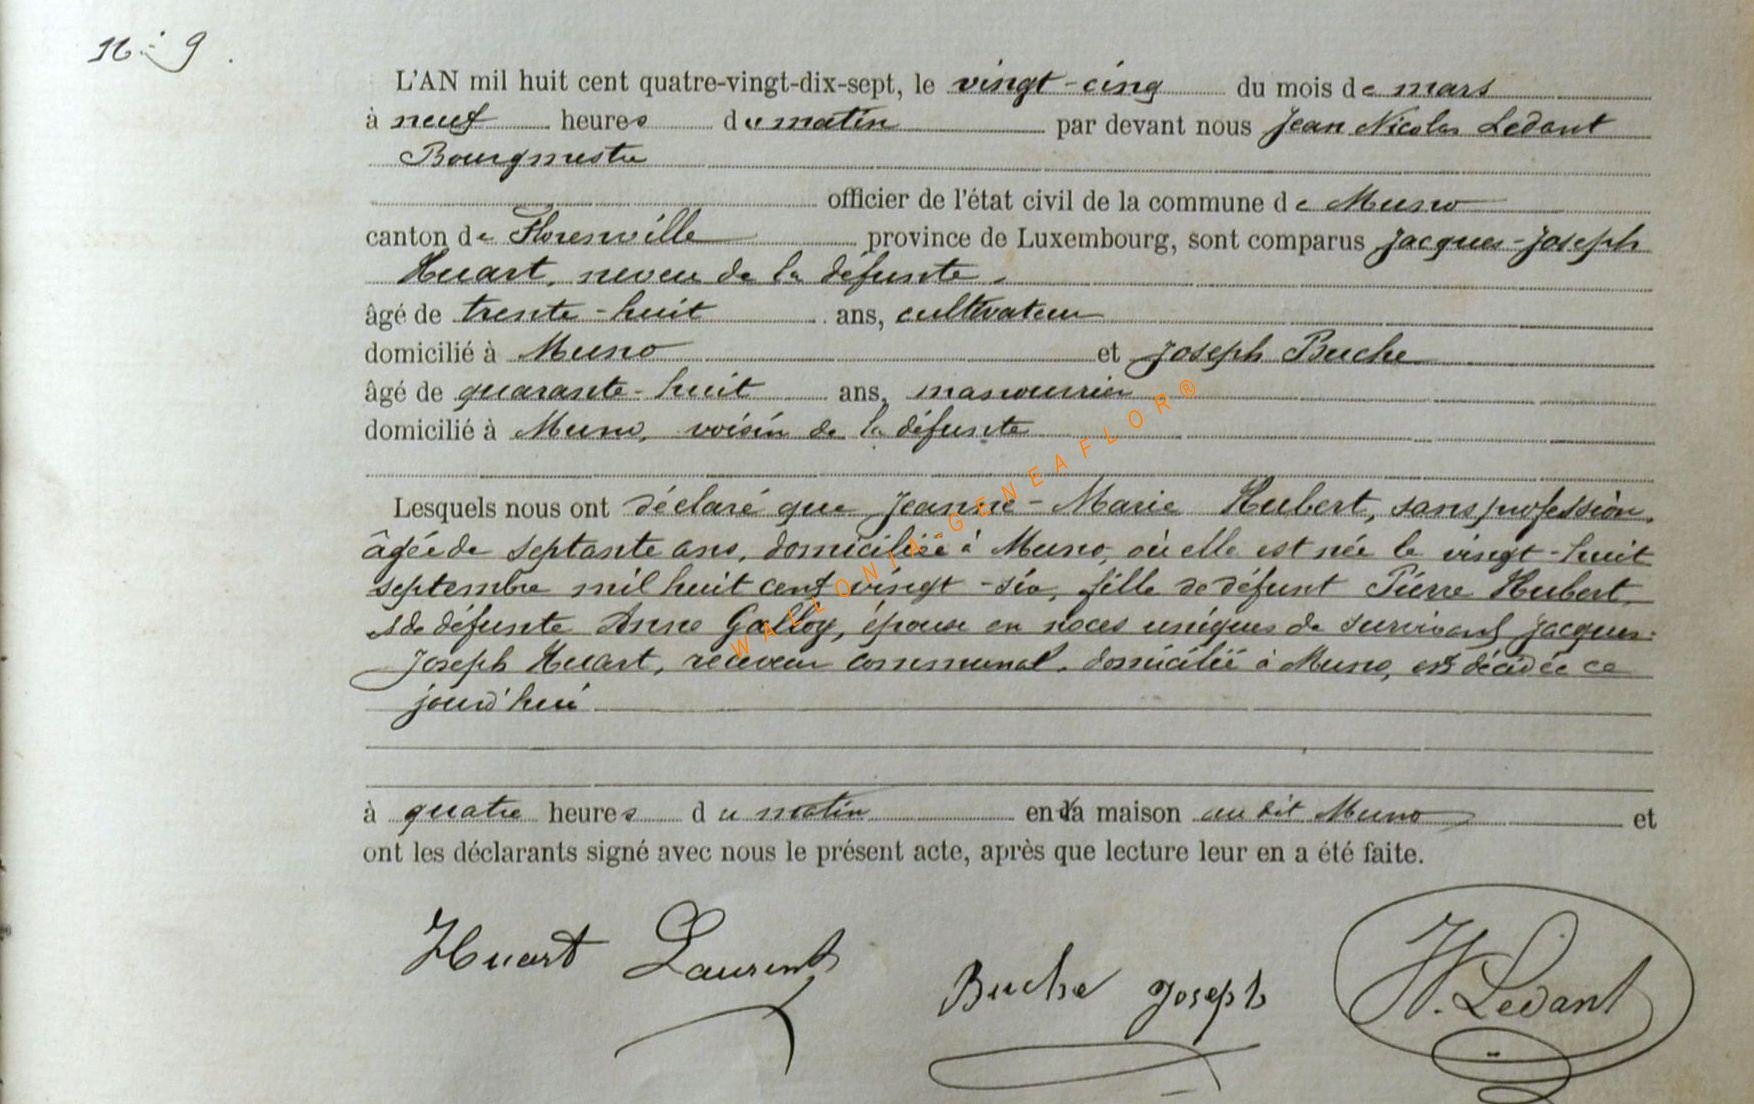 N° 9.
L'AN mil huit cent quatre-vingt-dix-sept, le vingt-cinq du mois de mars
à neuf heures du matin par devant nous Jean Nicolas Ledant
Bourgmestre
officier de l'état civil de la commune de Muno
canton de Florenville province de Luxembourg, sont comparus Jacques-Joseph
Huart, neveu de la défunte,
âgé de trente-huit ans, cultivateur
domicilié à Muno et Joseph Buche
âgé de quarante-huit ans, manouvrier
domicilié à Muno, voisin de la défunte
Lesquels nous ont déclaré que Jeanne-Marie Hubert, sans profession,
âgée de septante ans, domiciliée à Muno, où elle est née le vingt-huit
septembre mil huit cent vingt-six, fille de défunt Pierre Hubert
& de défunte Anne Galloy, épouse en noces uniques de survivant Jacques-
Joseph Huart, receveur communal, domicilié à Muno, est décédée ce
jourd'hui
à quatre heures du matin en sa maison au dit Muno et
ont les déclarants signé avec nous le présent acte, après que lecture leur en a été faite.
Huart Laurent
Buche Joseph
N. Ledant
WALLONIA-GENEAFLOR®